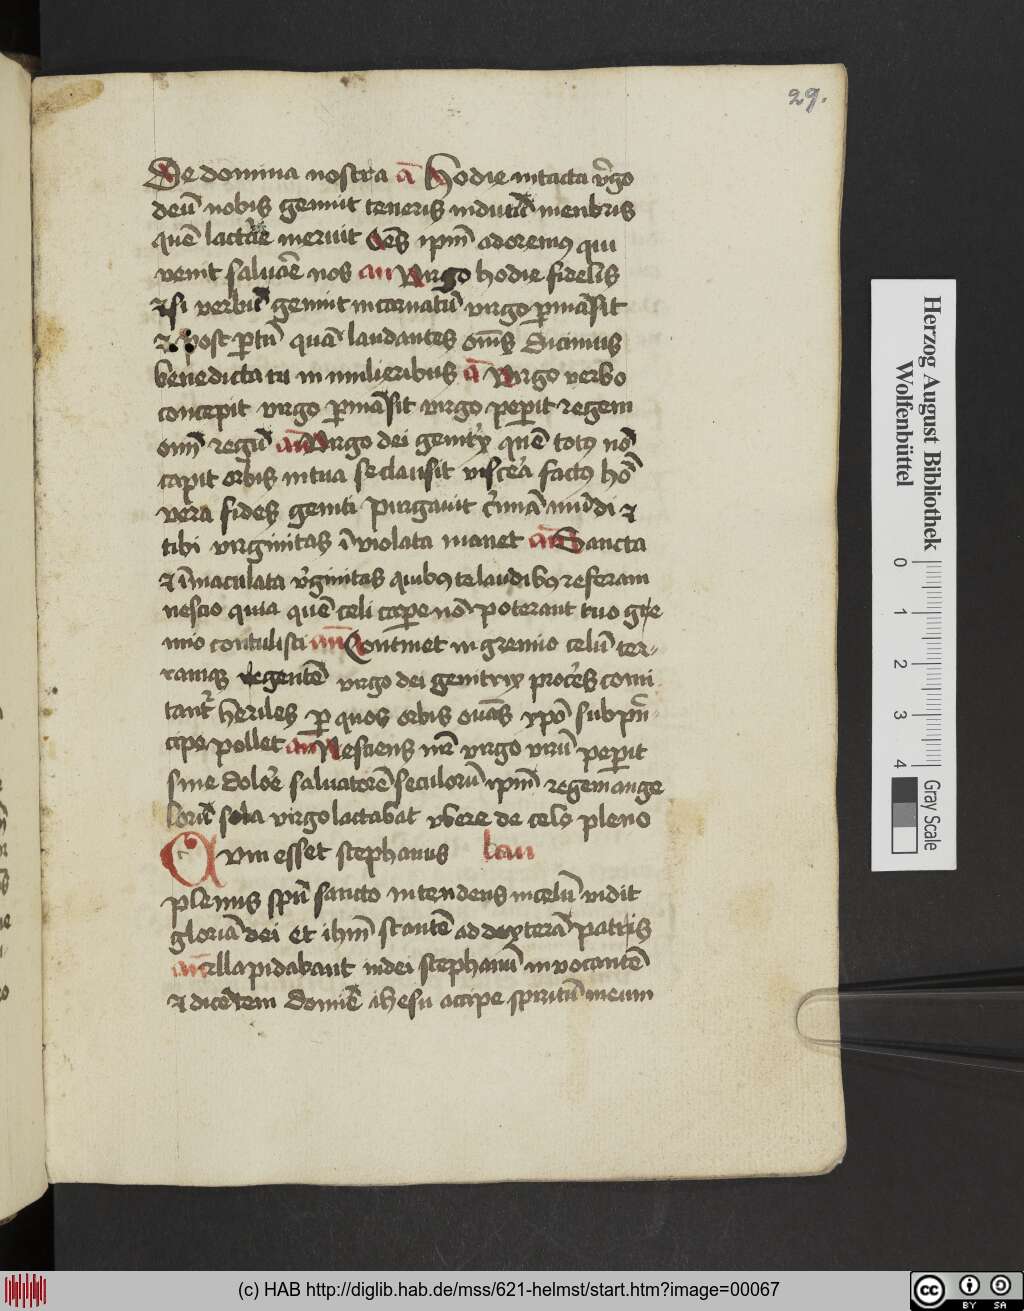 29.
De domina nostra añ Hodie intacta vˀgo
deū nobis genuit teneris indutū menbris
quē lactāe meruit Oēs ipm̄ adoremꝯ qui
venit saluāe nos an Virgo hodie fidelis
et si verbū genuit incarnatū virgo ꝑmāsit
et post ꝑtū quā laudantes om̄s dicimus
benedicta tu in mulieribus ā Virgo verbo
concepit virgo ꝑmāsit virgo peꝑit regem
oīm regū an Virgo dei genitˀx quē totꝯ nō
capit orbis in tua se clausit visceˀa factꝯ hō
vera fides geniti purgauit cˀmīa mūdi et
tibi virginitas īviolata manet an Sancta
et īmaculata vˀginitas quibꝯ te laudibꝯ referam
nescio quia quē celi caꝑe nō poterant tuo gre
mio contulisti an Continet in gremio celū ter-
ramqꝫ regentē virgo dei genitrix procˀes comi
tantˀ heriles ꝑ quos orbis ouās xpō sub pn̄
cipe pollet an Nesciens mr̄ virgo virū peꝑit
sine doloˀe saluatorē seculorū ipm̄ regem ange
lorū sola virgo lactabat vbere de celo pleno
Cum esset stephanus lau
plenus spū sancto intendens in celū vidit
gloriā dei et ihm̄ stantē ad dexterā patris
an Illapidabant iudei stephanū invocantē
et dicētem domiē ihesu accipe spiritū meum
Herzog August Bibliothek
Wolfenbüttel
0 1 2 3 4
Gray Scale
(c) HAB http://diglib.hab.de/mss/621-helmst/start.htm?image=00067
cc BY SA